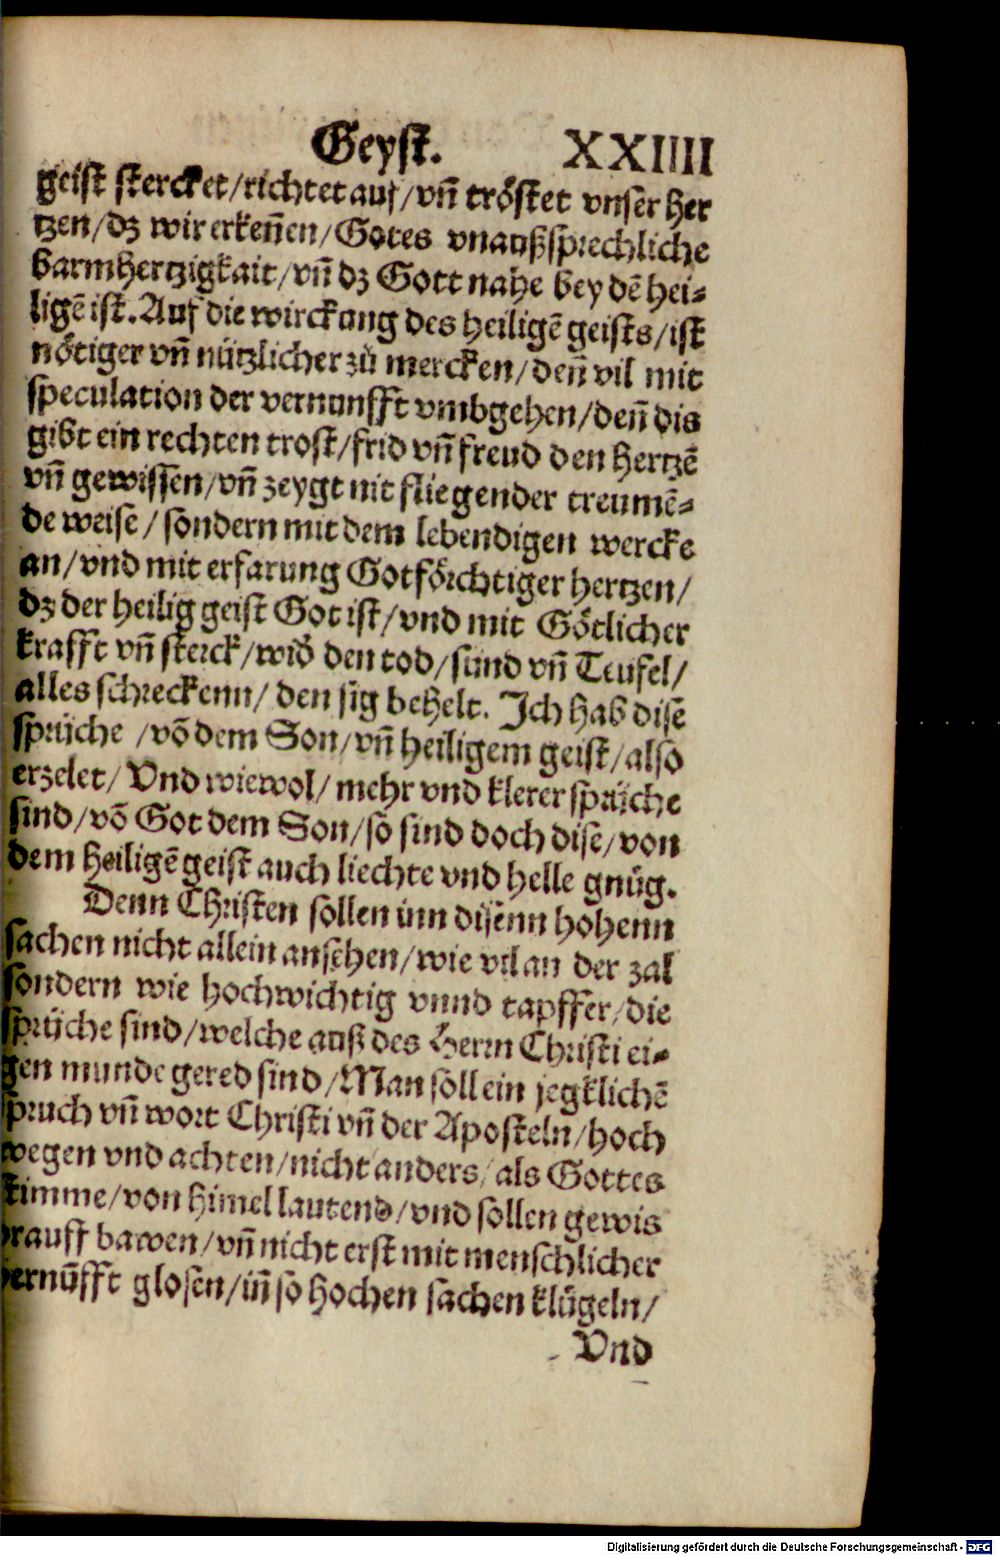 Geyst. XXIIII
geist stercket/richtet auf/vñ tröstet vnser her
tzen/dz wir erkeñen/Gotes vnaußsprechliche
barmhertzigkait/vñ dz Gott nahe bey dē hei-
ligē ist. Auf die wirckung des heiligē geists/ist
nötiger vñ nützlicher zů mercken/deñ vil mit
speculation der vernunfft vmbgehen/deñ dis
gibt ein rechten trost/frid vñ freud den hertzē
vñ gewissen/vñ zeygt nit fliegender treumē-
de weise/sondern mit dem lebendigen wercke
an/vnd mit erfarung Gotförchtiger hertzen/
dz der heilig geist Got ist/vnd mit Götlicher
krafft vñ sterck/wid̕ den tod/sünd vñ Teufel/
alles schreckenn/den sig behelt. Ich hab disē
sprüche /vō dem Son/vñ heiligem geist/also
erzelet/Vnd wiewol/mehr vnd klerer sprüche
sind/vō Got dem Son/so sind doch dise/von
dem heiligē geist auch liechte vnd helle gnůg.
Denn Christen sollen inn disenn hohenn
sachen nicht allein ansehen/wie vil an der zal
sondern wie hochwichtig vnnd tapffer/die
sprüche sind/welche auß des Herrn Christi ei-
gen munde gered sind/Man soll ein jegklichē
spruch vñ wort Christi vñ der Aposteln/hoch
wegen vnd achten/nicht anders/als Gottes
stimme/von himel lautend/vnd sollen gewis
drauff bawen/vñ nicht erst mit menschlicher
vernūfft glosen/iñ so hochen sachen klůgeln/
Vnd
Digitalisierung gefördert durch die Deutsche Forschungsgemeinschaft - DFG